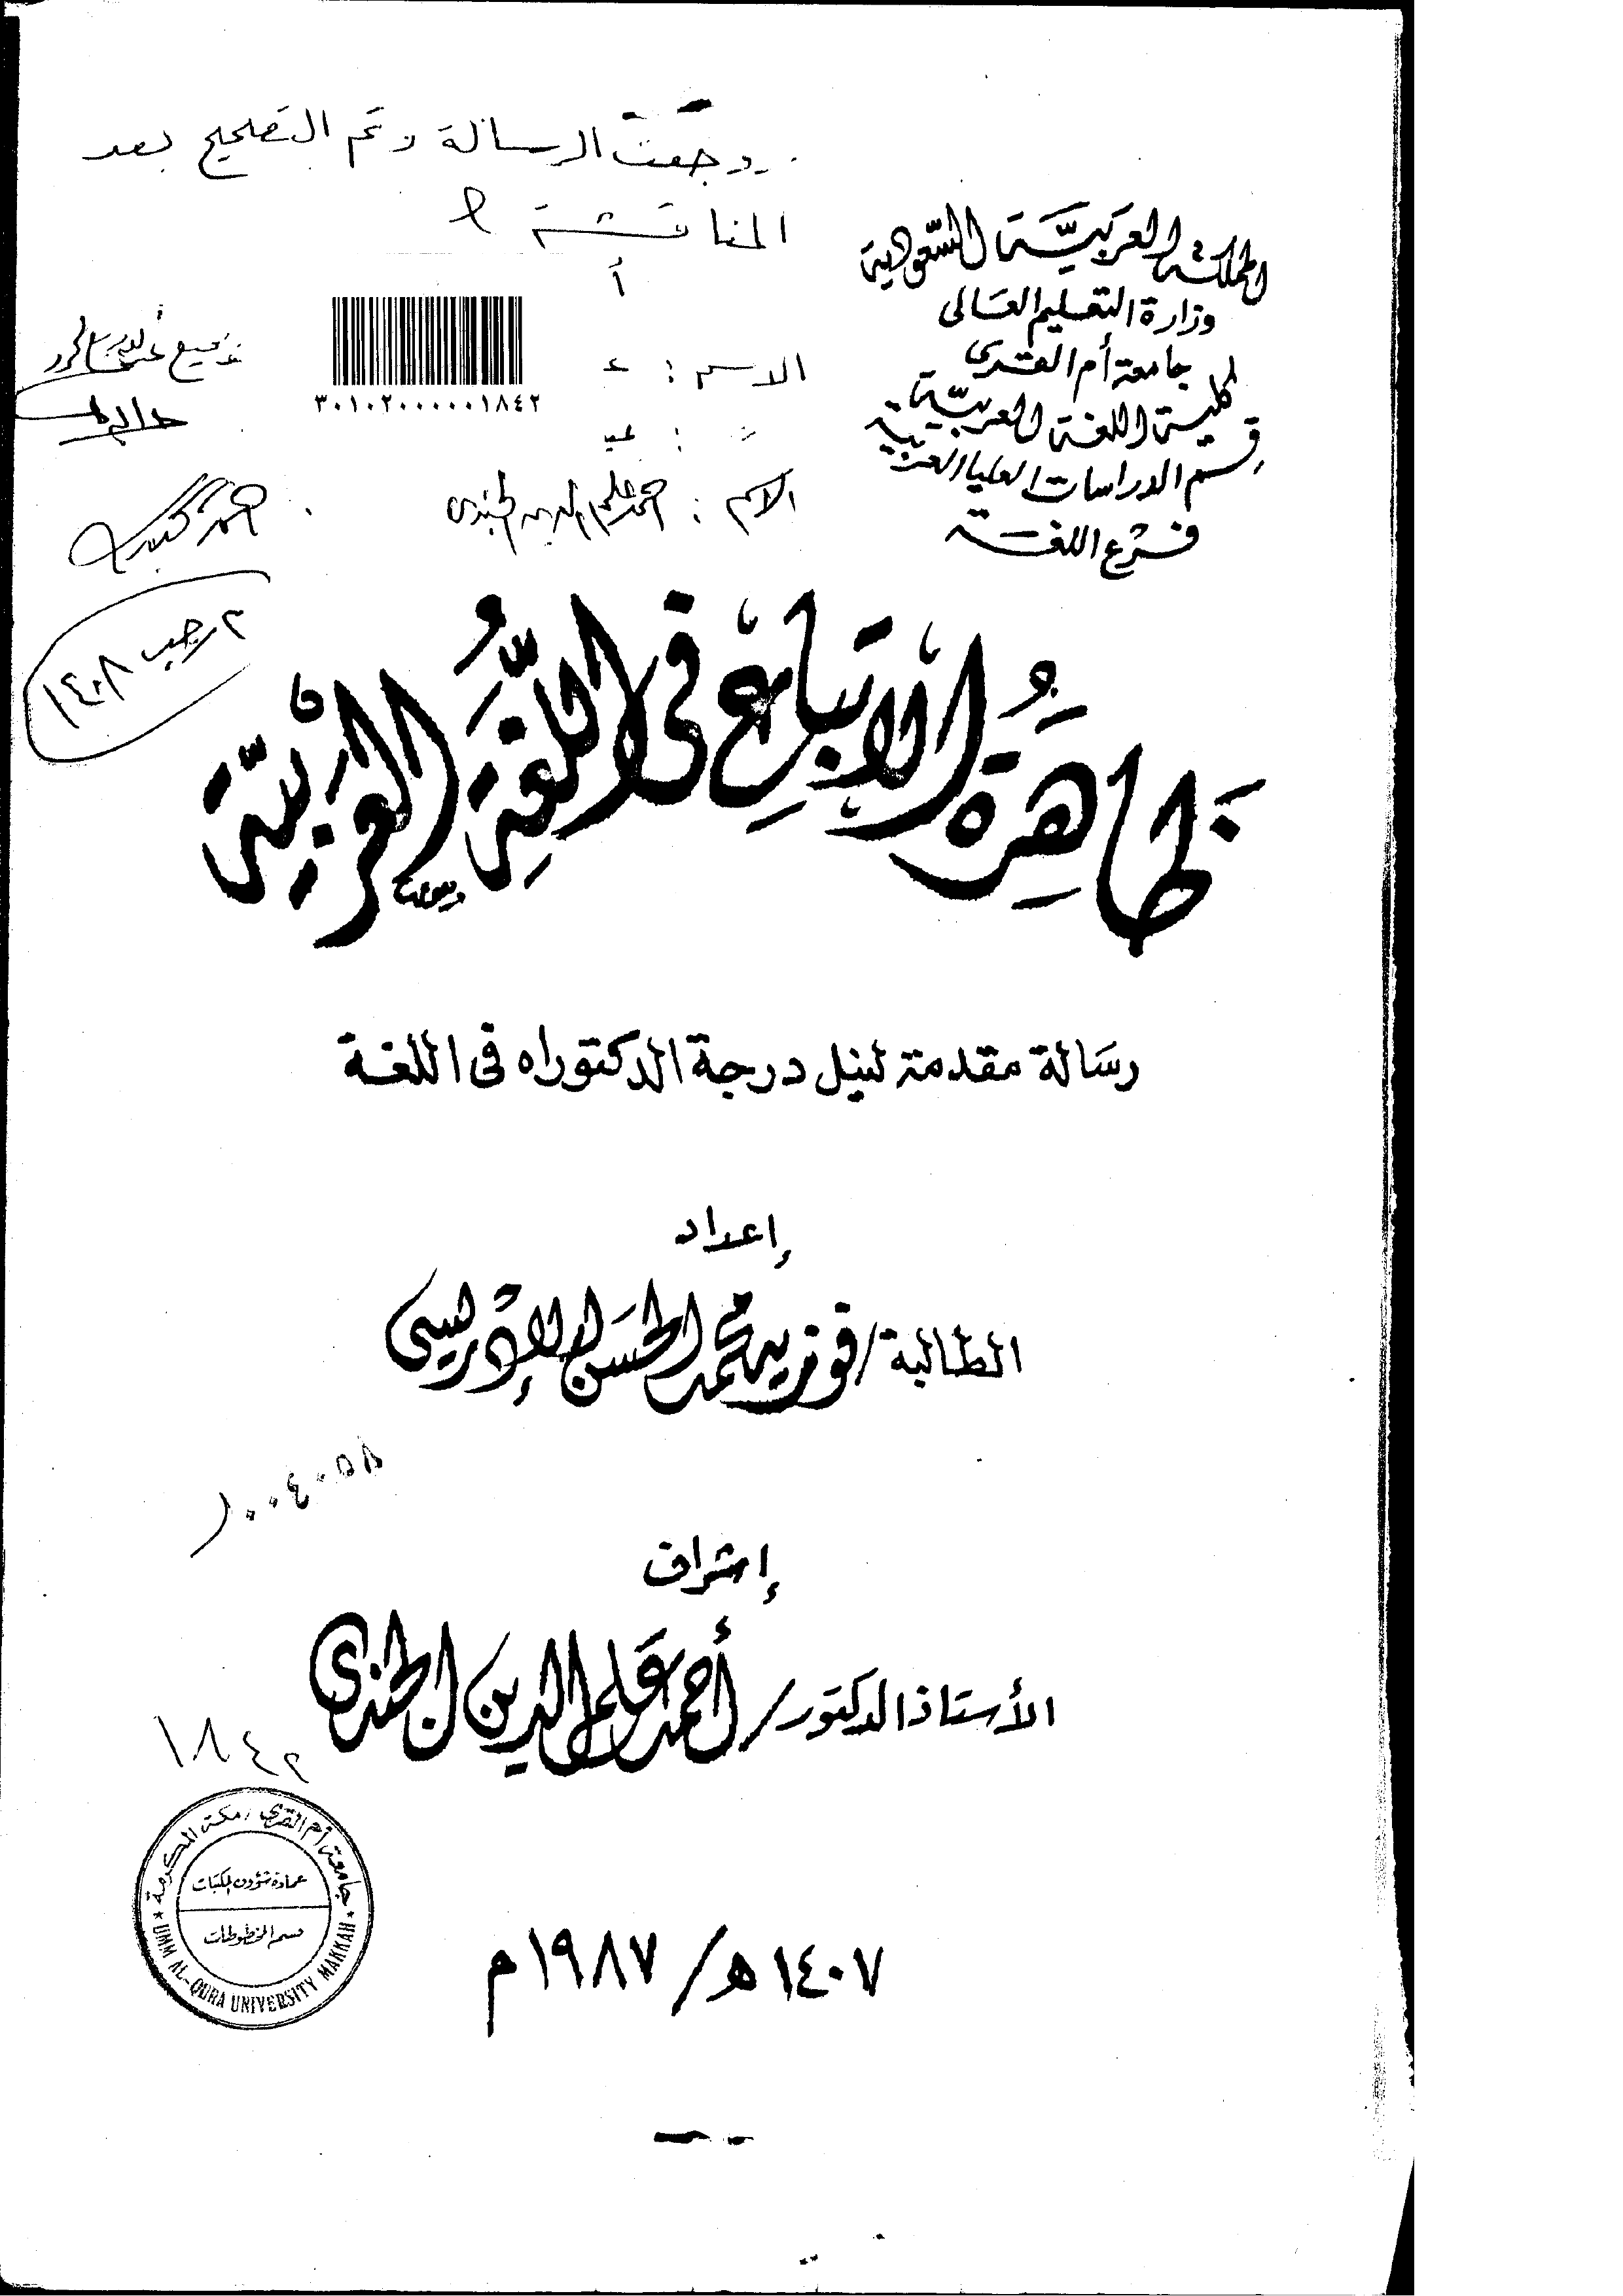 روجعت الرسالة وتم التصحيح بعد
المناقشة
المملكة العربيَّة السَّعودية
وزارة التعليم العالى
جامعة أم القرى
كلية اللغة العربيَّة
قسم الدراسات العليا العربية
فرع اللغة
٣٠١٠٢٠٠٠٠٠٠١٨٤٢
الاسم :
الاسم : احمد علم الدين الجندى
توقيع
٢ رجب ١٤٠٨
ظَاهِرَةُ الإتباع فى اللُّغَةِ العَرَبيَّة
رسَالة مقدمة لنيل درجة الدكتوراه فى اللغة
إعداد
الطالبة / فوزية محمد الحسن الإدريسى
١٠٠٤٠٥٨
إشراف
الأستاذ الدكتور / أحمد علم الدين الجندى
١٨٤٢
جامعة أم القرى / مكة المكرمة
عمادة شؤون المكتبات
قسم المخطوطات
UMM AL-QURA UNIVERSITY MAKKAH
١٤٠٧ هـ / ١٩٨٧ م